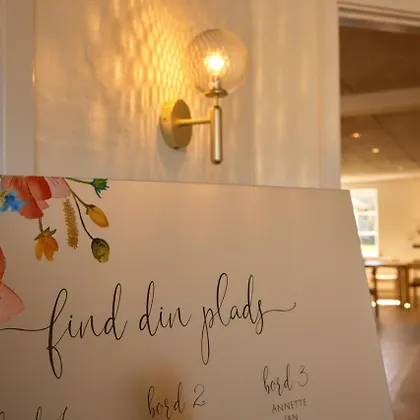 find din plads
bord 2
bord 3
ANNETTE
JAN